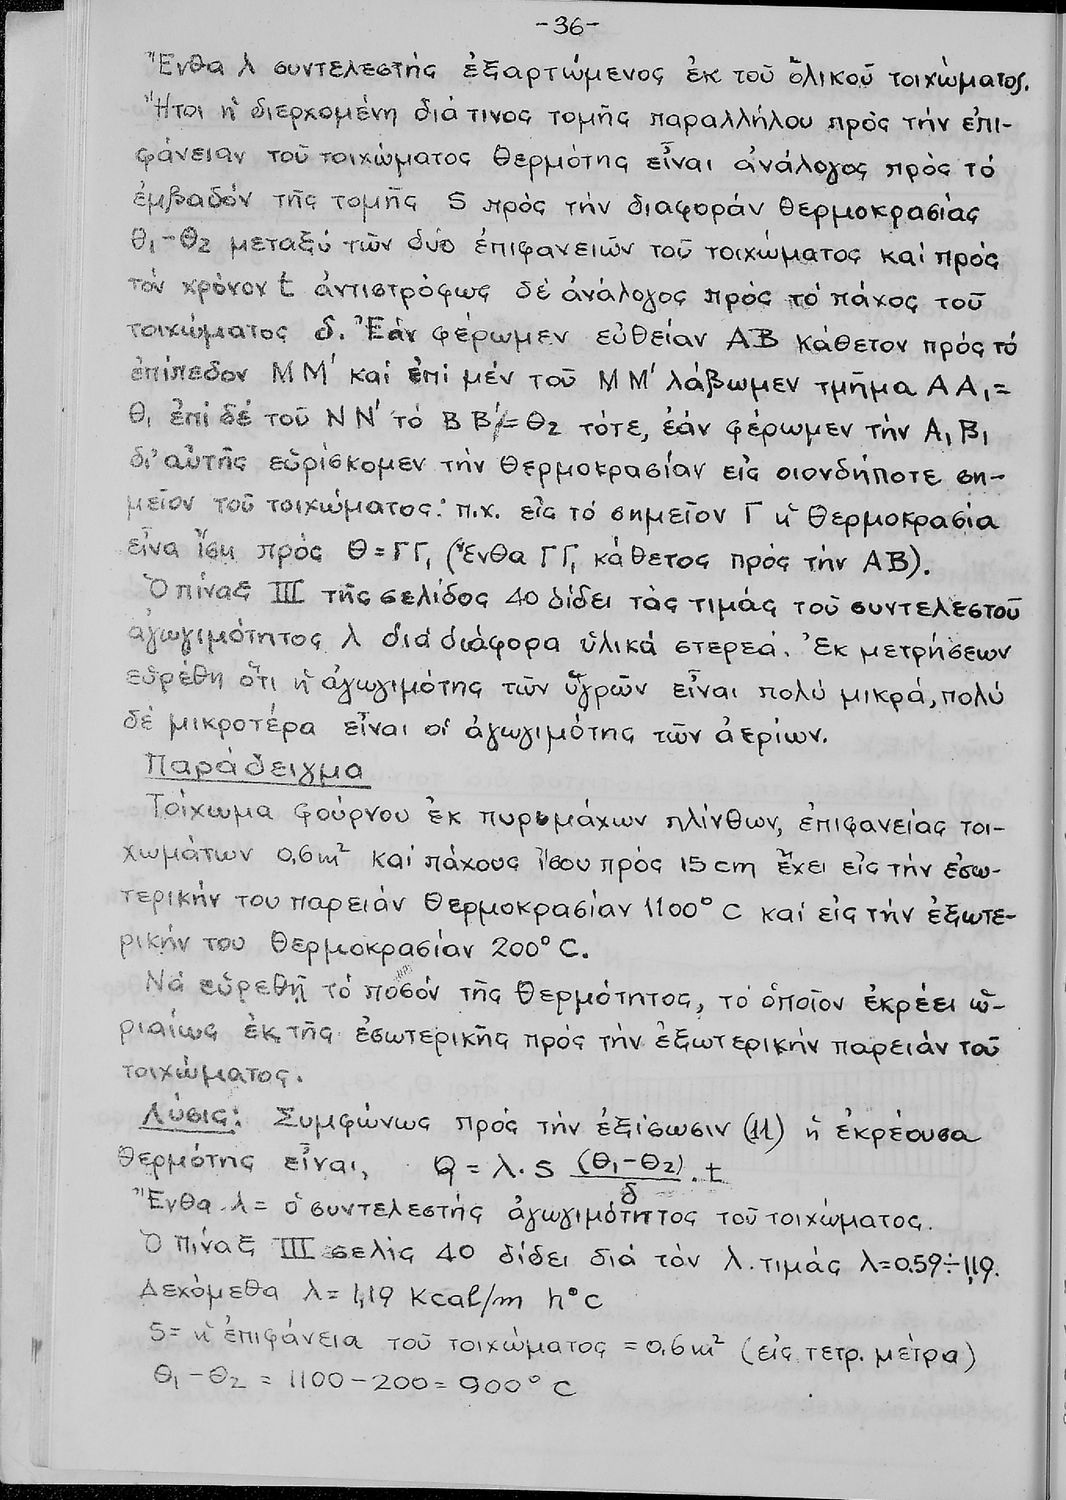 -36-
Ἔνθα λ συντελεστής ἐξαρτώμενος ἐκ τοῦ ὑλικοῦ τοιχώματος.
Ἤτοι ἡ διερχομένη διά τινος τομῆς παραλλήλου πρὸς τήν ἐπι-
φάνειαν τοῦ τοιχώματος θερμότης εἶναι ἀνάλογος πρὸς τό
ἐμβαδόν τῆς τομῆς S πρὸς τήν διαφοράν θερμοκρασίας
θ₁-θ₂ μεταξύ τῶν δύο ἐπιφανειῶν τοῦ τοιχώματος καί πρός
τόν χρόνον t ἀντιστρόφως δέ ἀνάλογος πρός τό πάχος τοῦ
τοιχώματος δ. Ἐάν φέρωμεν εὐθείαν ΑΒ κάθετον πρός τό
ἐπίπεδον ΜΜ' καί ἐπί μέν τοῦ ΜΜ' λάβωμεν τμῆμα ΑΑ₁=
θ₁ ἐπί δέ τοῦ ΝΝ' τό ΒΒ'=θ₂ τότε, ἐάν φέρωμεν τήν Α₁Β₁
δι' αὐτῆς εὑρίσκομεν τήν θερμοκρασίαν εἰς οιονδήποτε ση-
μεῖον τοῦ τοιχώματος: π.χ. εἰς τό σημεῖον Γ ἡ θερμοκρασία
εἶνα ἴση πρός θ=ΓΓ₁ (ἔνθα ΓΓ₁ κάθετος πρός τήν ΑΒ).
Ὁ πίναξ III τῆς σελίδος 40 δίδει τὰς τιμάς τοῦ συντελεστοῦ
ἀγωγιμότητος λ διά διάφορα ὑλικά στερεά. Ἐκ μετρήσεων
εὑρέθη ὅτι ἡ ἀγωγιμότης τῶν ὑγρῶν εἶναι πολύ μικρά, πολύ
δέ μικροτέρα εἶναι οἱ ἀγωγιμότης τῶν ἀερίων.
Παράδειγμα
Τοίχωμα φούρνου ἐκ πυριμάχων πλίνθων, ἐπιφανείας τοι-
χωμάτων 0,6m² καί πάχους ἴσου πρός 15cm ἔχει εἰς τήν ἐσω-
τερικήν του παρειάν θερμοκρασίαν 1100°C καί εἰς τήν ἐξωτε-
ρικήν του θερμοκρασίαν 200°C.
Νά εὑρεθῇ τό ποσόν τῆς θερμότητος, τό ὁποῖον ἐκρέει ὡ-
ριαίως ἐκ τῆς ἐσωτερικῆς πρός τήν ἐξωτερικήν παρειάν τοῦ
τοιχώματος.
Λύσις: Συμφώνως πρός τήν ἐξίσωσιν (11) ἡ ἐκρέουσα
θερμότης εἶναι, Q = λ.S (θ₁-θ₂)/δ . t
Ἔνθα λ= ὁ συντελεστής ἀγωγιμότητος τοῦ τοιχώματος.
Ὁ πίναξ III σελίς 40 δίδει διά τόν λ τιμάς λ=0.59÷1,19.
Δεχόμεθα λ= 1,19 Kcal/m h°C
S= ἡ ἐπιφάνεια τοῦ τοιχώματος =0,6m² (εἰς τετρ. μέτρα)
θ₁-θ₂ = 1100-200=900°C